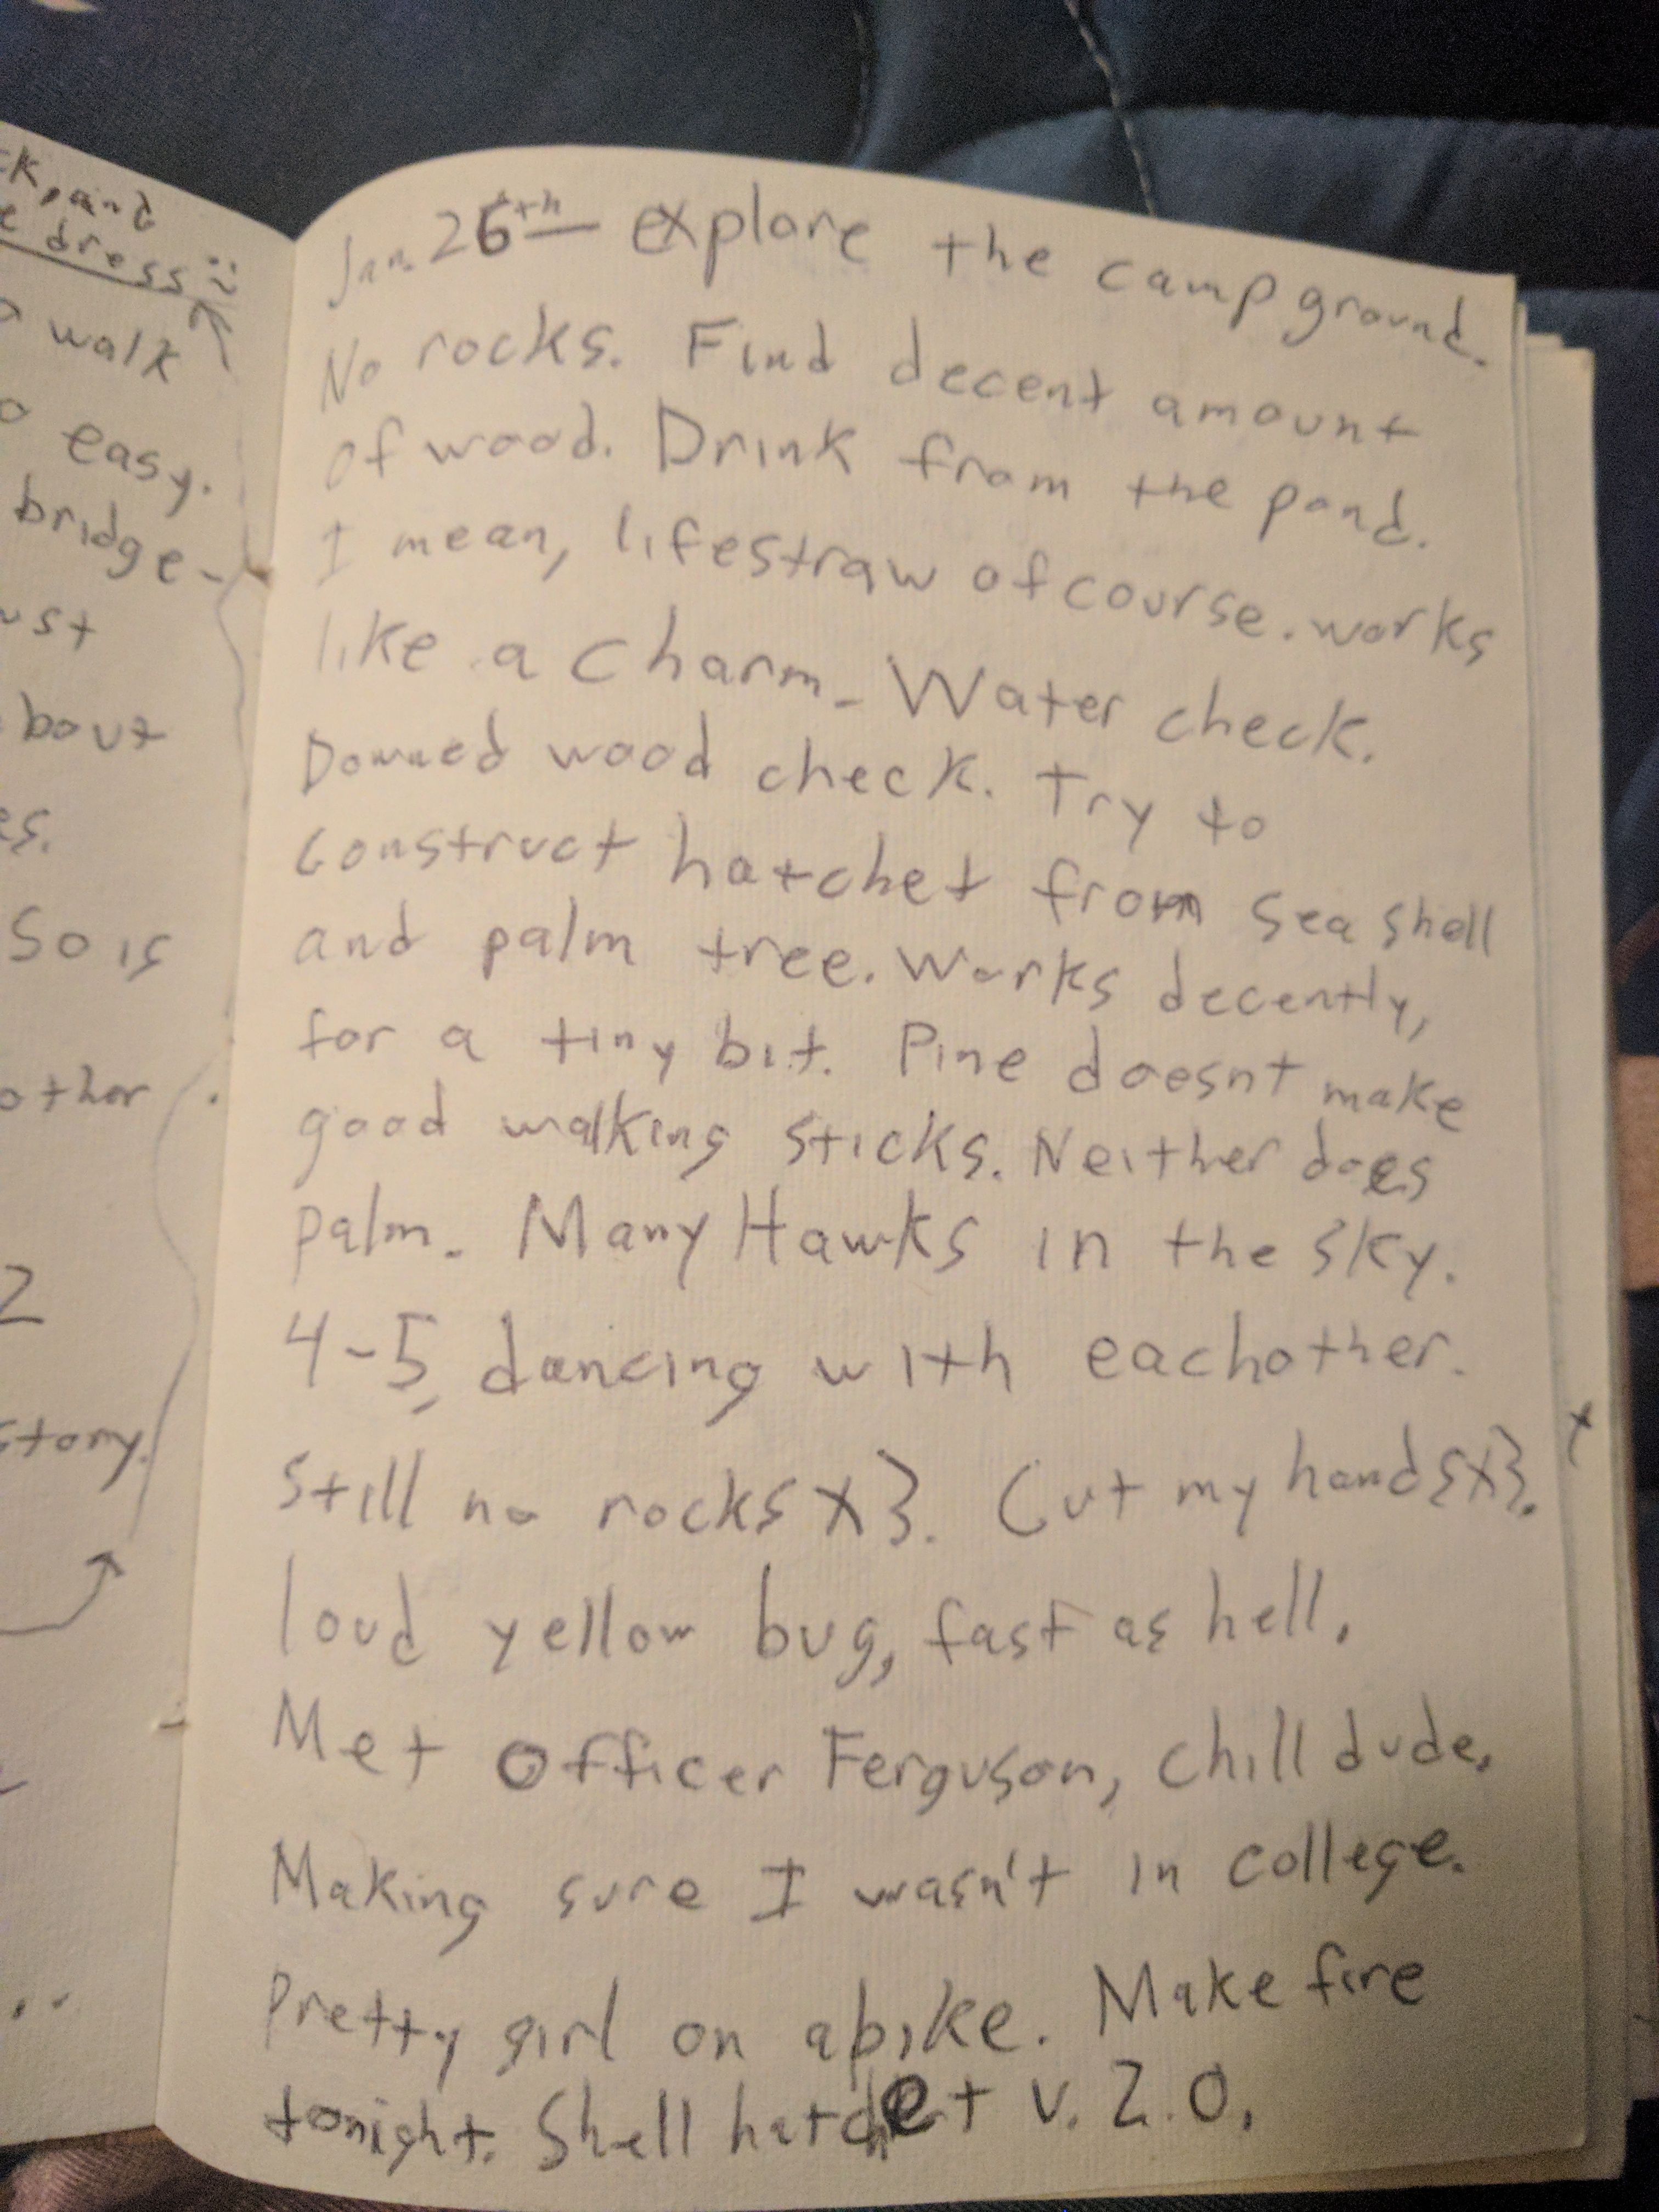 k, and
e dress
walk
easy.
bridge-
ust
bout
es.
So is
other
2
story.
Jan. 26th - explore the campground.
No rocks. Find decent amount
of wood. Drink from the pond.
I mean, lifestraw of course. works
like a charm. Water check.
Downed wood check. Try to
construct hatchet from sea shell
and palm tree. Works decently,
for a tiny bit. Pine doesnt make
good walking sticks. Neither does
palm. Many Hawks in the sky.
4-5, dancing with eachother.
Still no rocks x3. Cut my hand {x3.
loud yellow bug, fast as hell.
Met Officer Ferguson, chill dude.
Making sure I wasn't in college.
Pretty girl on a bike. Make fire
tonight. Shell hatchet v. 2.0.